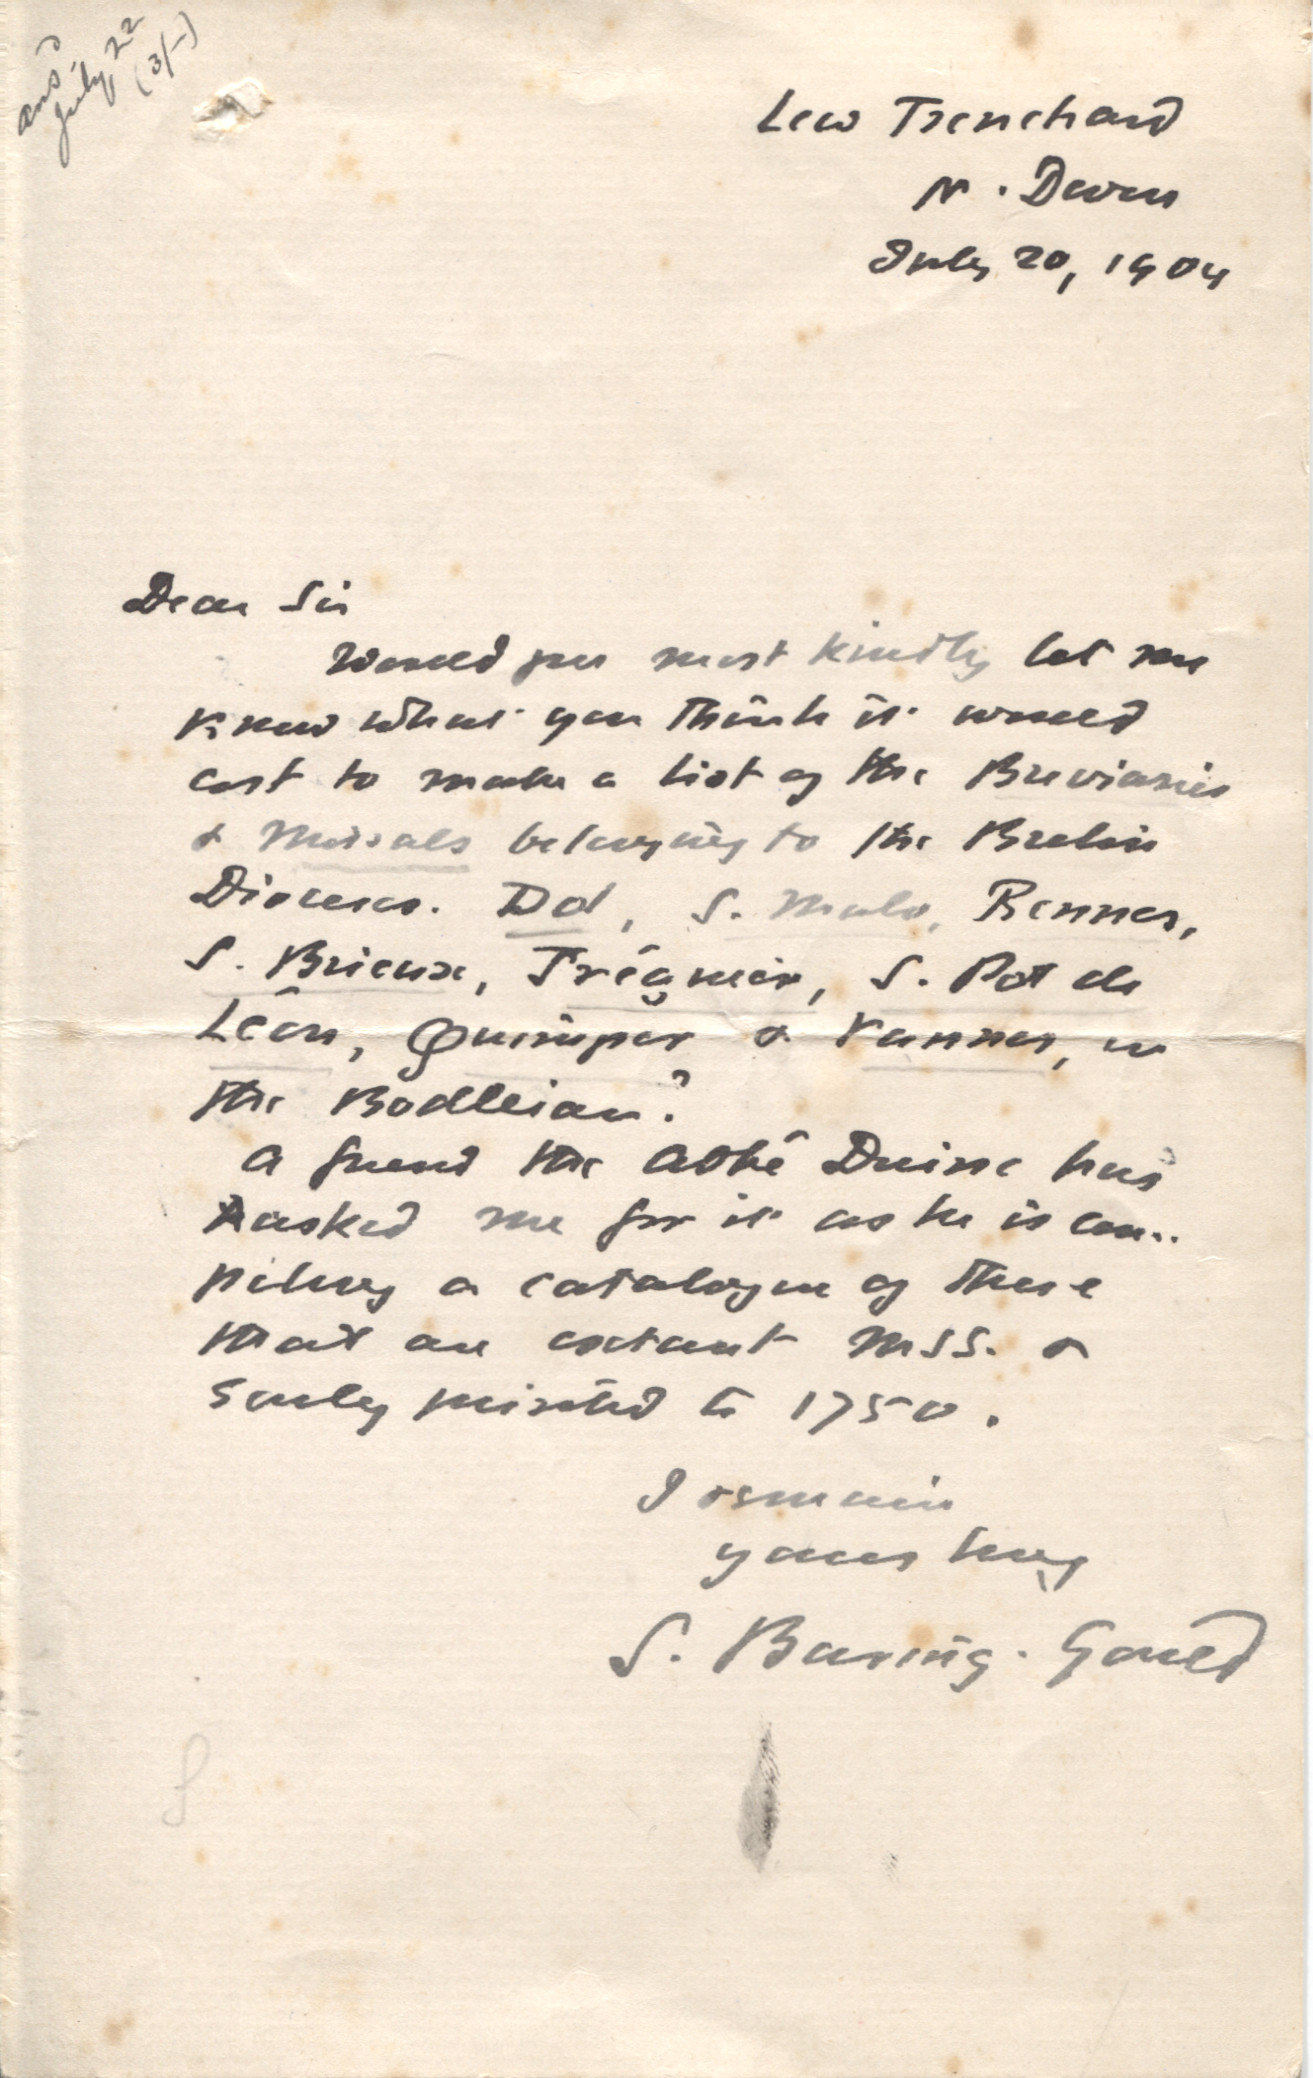 ansd
July 22
(3/-)
Lew Trenchard
N. Devon
July 20, 1904
Dear Sir
Would you most kindly let me
know what you think it would
cost to make a list of the Breviaries
& Missals belonging to the Breton
Dioceses. Dol, S. Malo, Rennes,
S. Brieux, Tréguier, S. Pol de
Léon, Quimper & Vannes, in
the Bodleian?
A friend the Abbé Duine has
asked me for it as he is com..
piling a catalogue of these
that are extant MSS. &
early printed to 1750.
I remain
yours truly
S. Baring-Gould